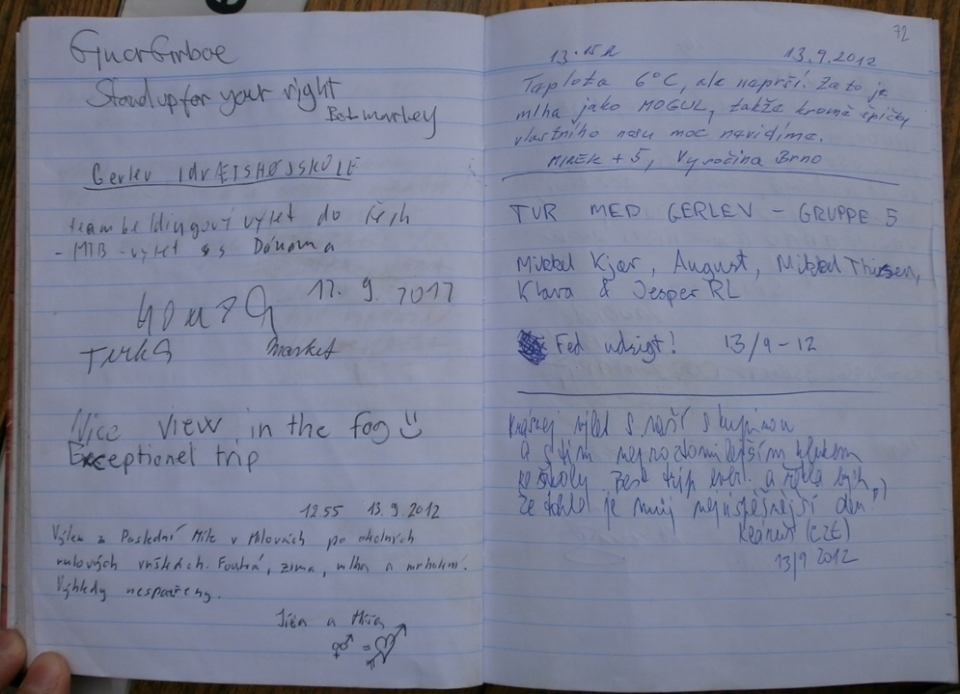 Stand up for your right
Bob marley
Gerlev IDRÆTSHØJSKOLE
teambeldingový výlet do Čech
- MTB - výlet s Dánama
12. 9. 2012
market
Nice view in the fog
Exceptionel trip
12.55 13.9.2012
Výlet z Poslední Míle v Milovách po okolních
rulových vrškách. Fouká, zima, mlha a mrholení.
Výhledy nespatřeny.
a
72
13.15h 13.9.2012
Taplota 6°C, ale neprší. Zato je
mlha jako MOGUL, takže kromě špičky
vlastního nosu moc nevidíme.
MIREK + 5, Vysočina Brno
TUR MED GERLEV - GRUPPE 5
Mikkel Kjær, August, Mikkel
Klara & Jesper RL
Fed udsigt! 13/9-12
Krásnej výlet s naší skupinou
a s tím nejroztomilejším klukem
ze školy. Best trip ever. a řekla bych,
že tohle je můj nejúspěšnější den
(CZE)
13/9 2012